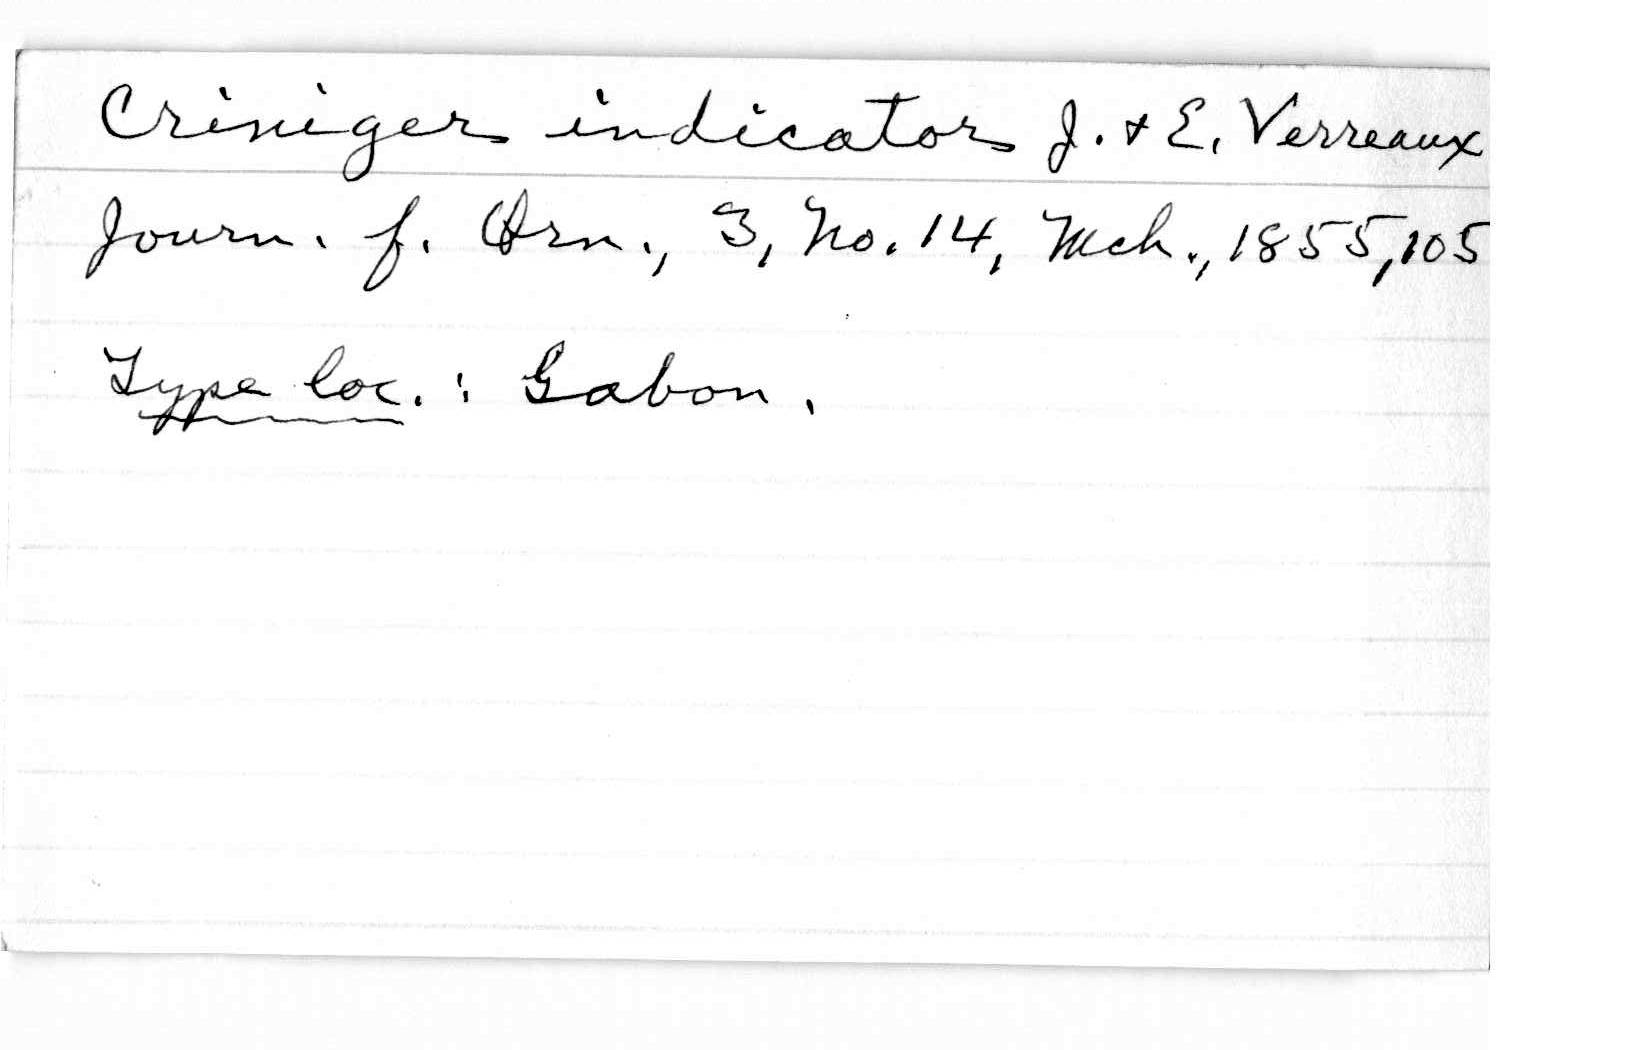 Criniger indicator J. + E. Verreaux
Journ. f. Orn., 3, No. 14, Mch., 1855, 105
Type loc. : Gabon.